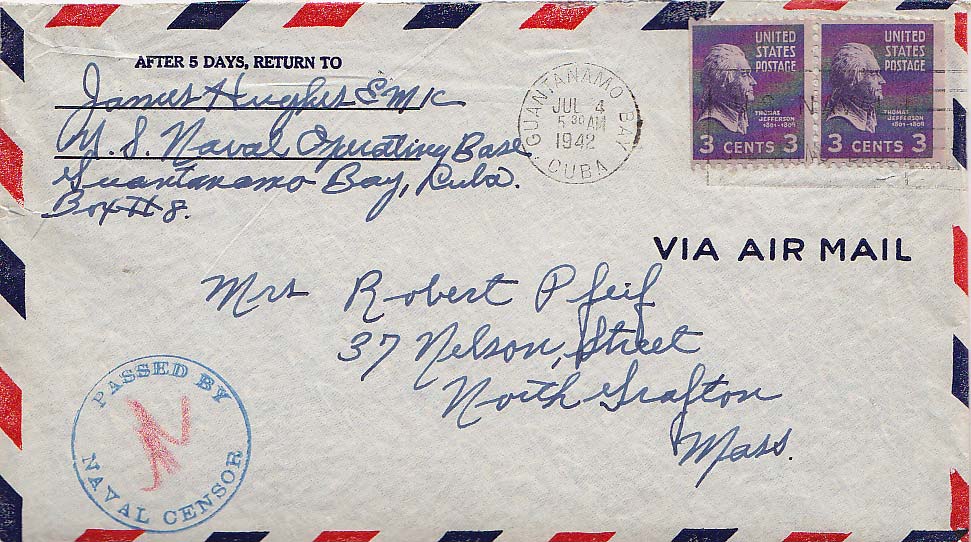 AFTER 5 DAYS, RETURN TO
James Hughes EM1c
U.S. Naval Operating Base
Guantanamo Bay, Cuba.
Box # 8.
GUANTANAMO BAY
JUL 4
5 30 AM
1942
CUBA
UNITED
STATES
POSTAGE
THOMAS
JEFFERSON
1801-1809
3 CENTS 3
UNITED
STATES
POSTAGE
THOMAS
JEFFERSON
1801-1809
3 CENTS 3
VIA AIR MAIL
Mrs Robert Pfeif
37 Nelson, Street
North Grafton
Mass.
PASSED BY
N
NAVAL CENSOR